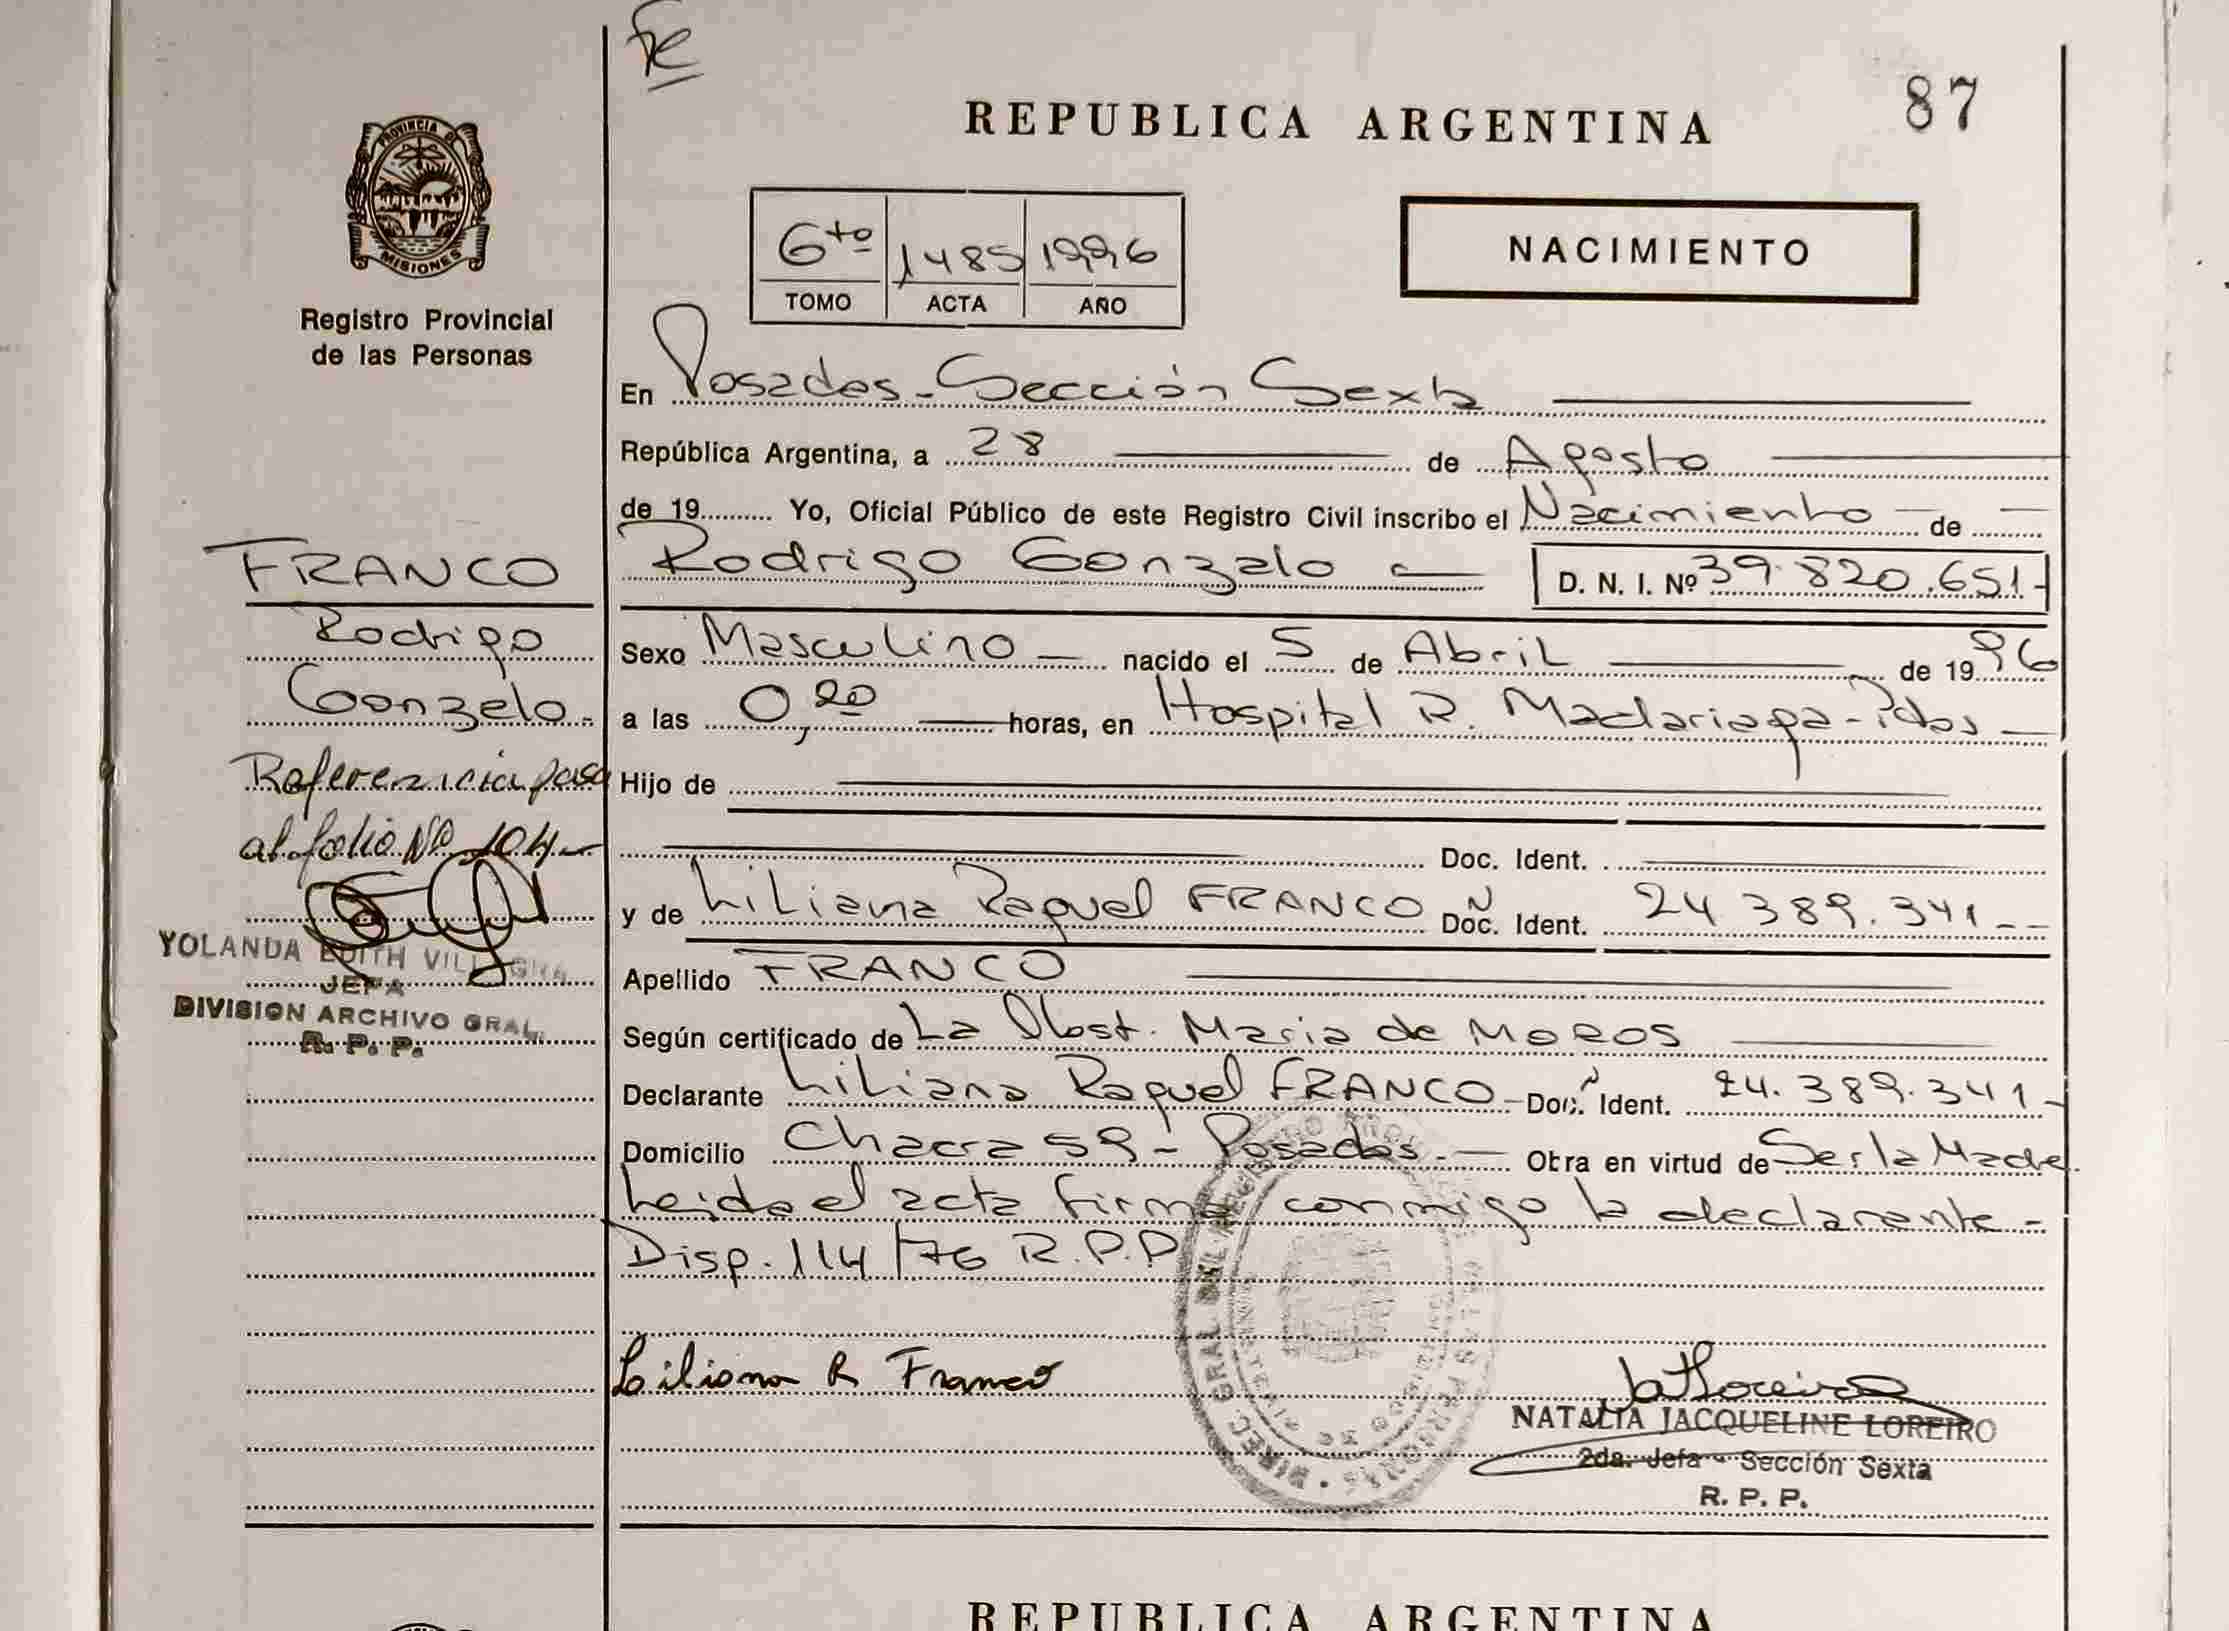 Fe
REPUBLICA ARGENTINA
87
PROVINCIA DE
MISIONES
Registro Provincial
de las Personas
6to 1485 1996
TOMO ACTA AÑO
NACIMIENTO
En Posadas - Sección Sexta
República Argentina, a 28 de Agosto
de 19 Yo, Oficial Público de este Registro Civil inscribo el Nacimiento de
Rodrigo Gonzalo D. N. I. Nº 39.820.651-
FRANCO
Rodrigo
Gonzalo-
Referencia pasa
al folio Nº 104-
YOLANDA EDITH
JEFA
DIVISION ARCHIVO GRAL.
R. P. P.
Sexo Masculino nacido el 5 de Abril de 1996
a las 0,20 horas, en Hospital R. Madariaga - Pdas
Hijo de
Doc. Ident.
y de Liliana Raquel FRANCO Doc. Ident. 24.389.341--
Apellido FRANCO
Según certificado de La Obst. Maria de Moros
Declarante Liliana Raquel FRANCO - Doc. Ident. 24.389.341-
Domicilio Chacra 59 - Posadas.- Otra en virtud de Ser la Madre
Leida el acta firma conmigo la declarante-
Disp. 114/76 R.P.P
Liliana R Franco
NATALIA JACQUELINE LOREIRO
2da. Jefa - Sección Sexta
R. P. P.
REPUBLICA ARGENTINA